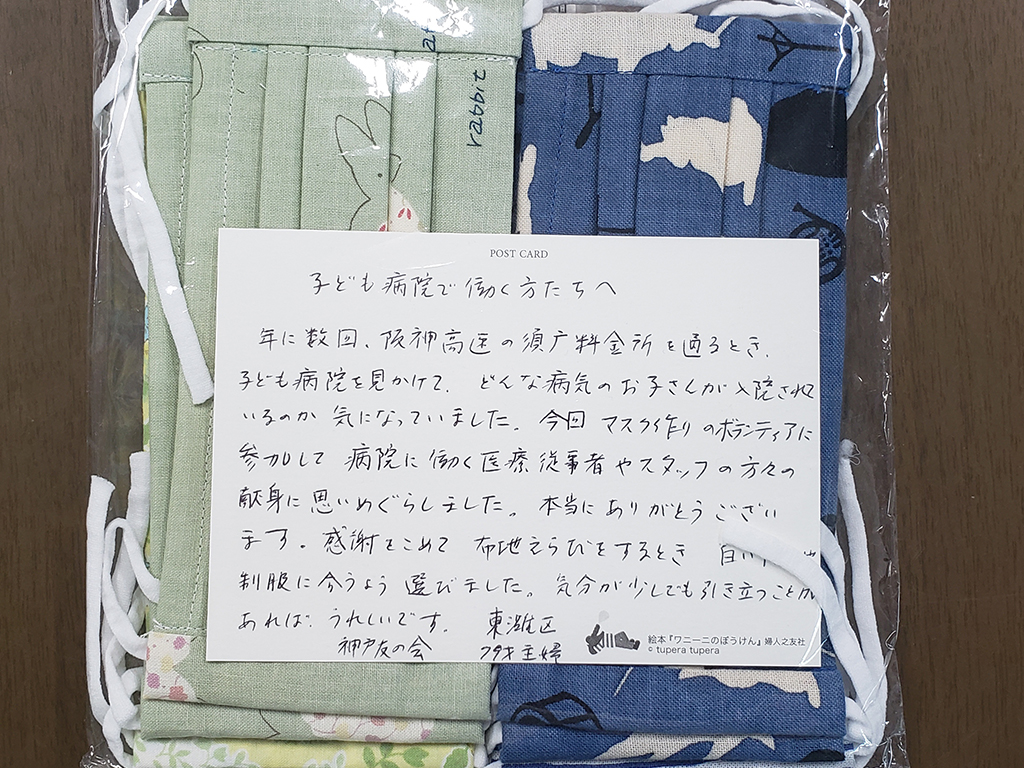 rabbit
POST CARD
子ども病院で働く方たちへ
年に数回、阪神高速の須磨料金所を通るとき、
子ども病院を見かけて、どんな病気のお子さんが入院されて
いるのか 気になっていました。今回 マスク作りのボランティアに
参加して 病院に働く医療従事者やスタッフの方々の
献身に思いめぐらしました。本当にありがとうござい
ます。感謝をこめて 布地えらびをするとき
制服に合うよう 選びました。気分が少しでも引き立つことが
あれば、うれしいです。 東灘区
神戸友の会 主婦
絵本『ワニーニのぼうけん』婦人之友社
© tupera tupera